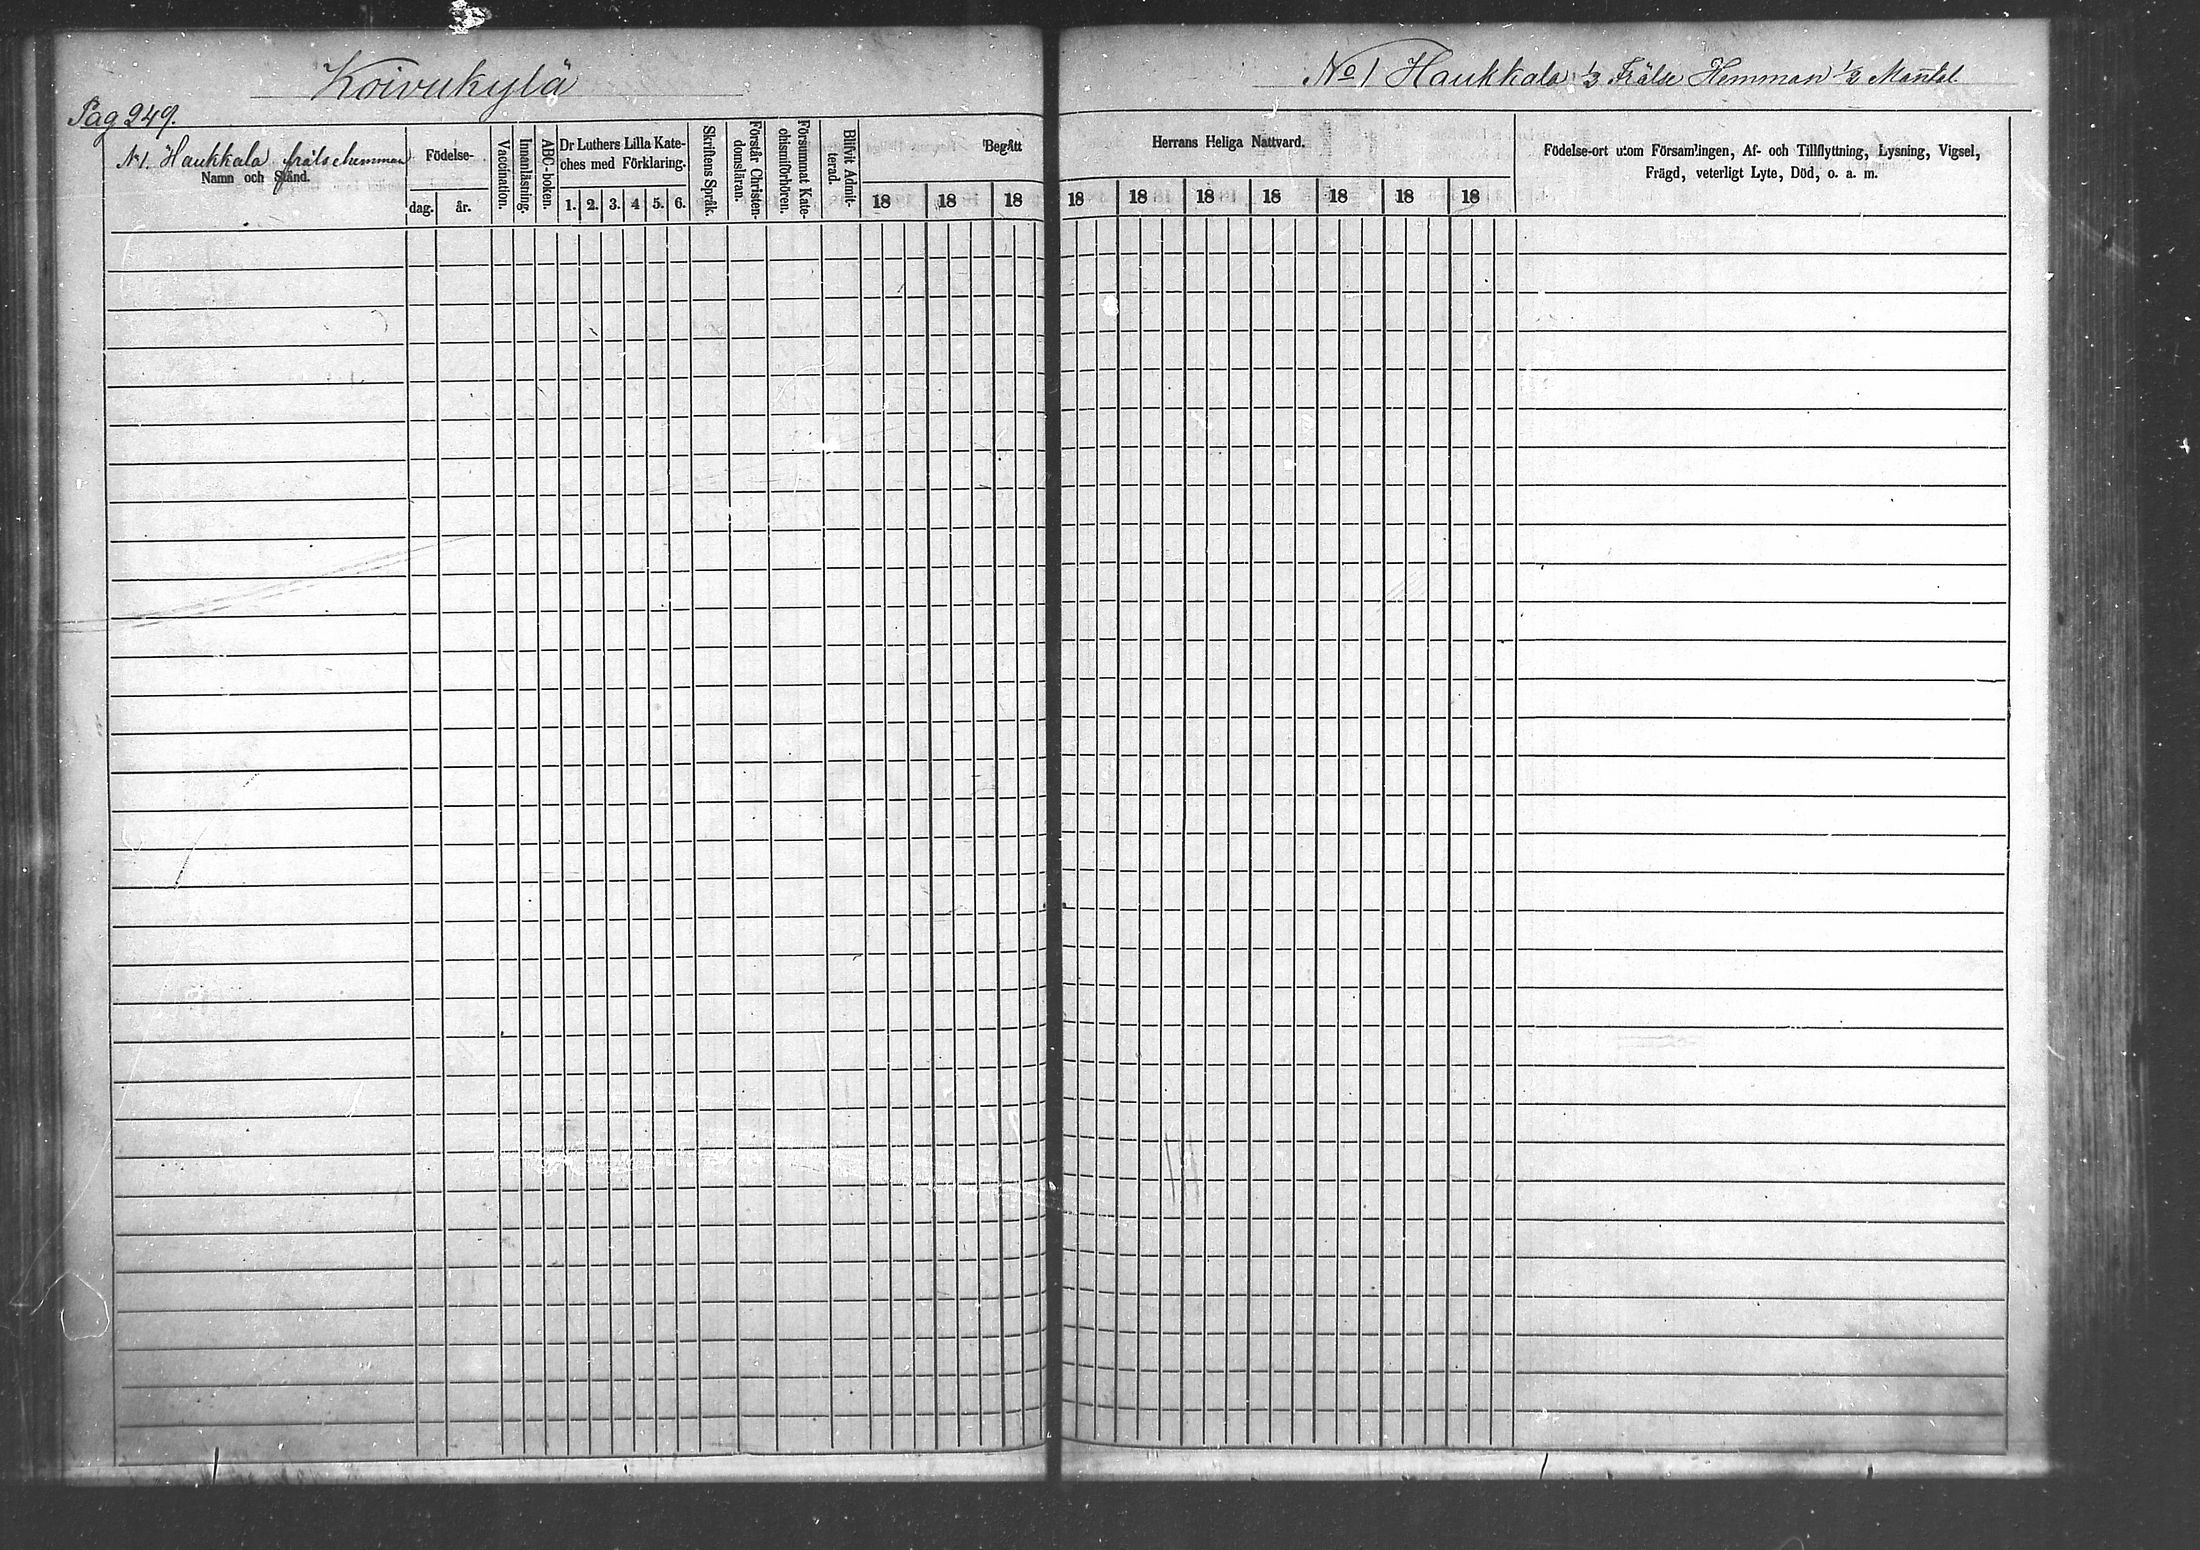 Koivukylä
Pag 249.
No 1 Haukkala 1/3 Frälse Hemman 1/3 Mantal
No 1. Haukkala frälsehemman
Namn och Stånd.
Födelse-
dag. år.
Vaccination.
Innanläsning.
ABC-boken.
Dr Luthers Lilla Kate-
ches med Förklaring.
1. 2. 3. 4 5. 6.
Skriftens Språk.
Förstår Christen-
domsläran.
Försummat Kate-
chismiförhören.
Blifvit Admit-
terad.
Begått
18 18 18
Herrans Heliga Nattvard.
18 18 18 18 18 18 18
Födelse-ort utom Församlingen, Af- och Tillflyttning, Lysning, Vigsel,
Frägd, veterligt Lyte, Död, o. a. m.